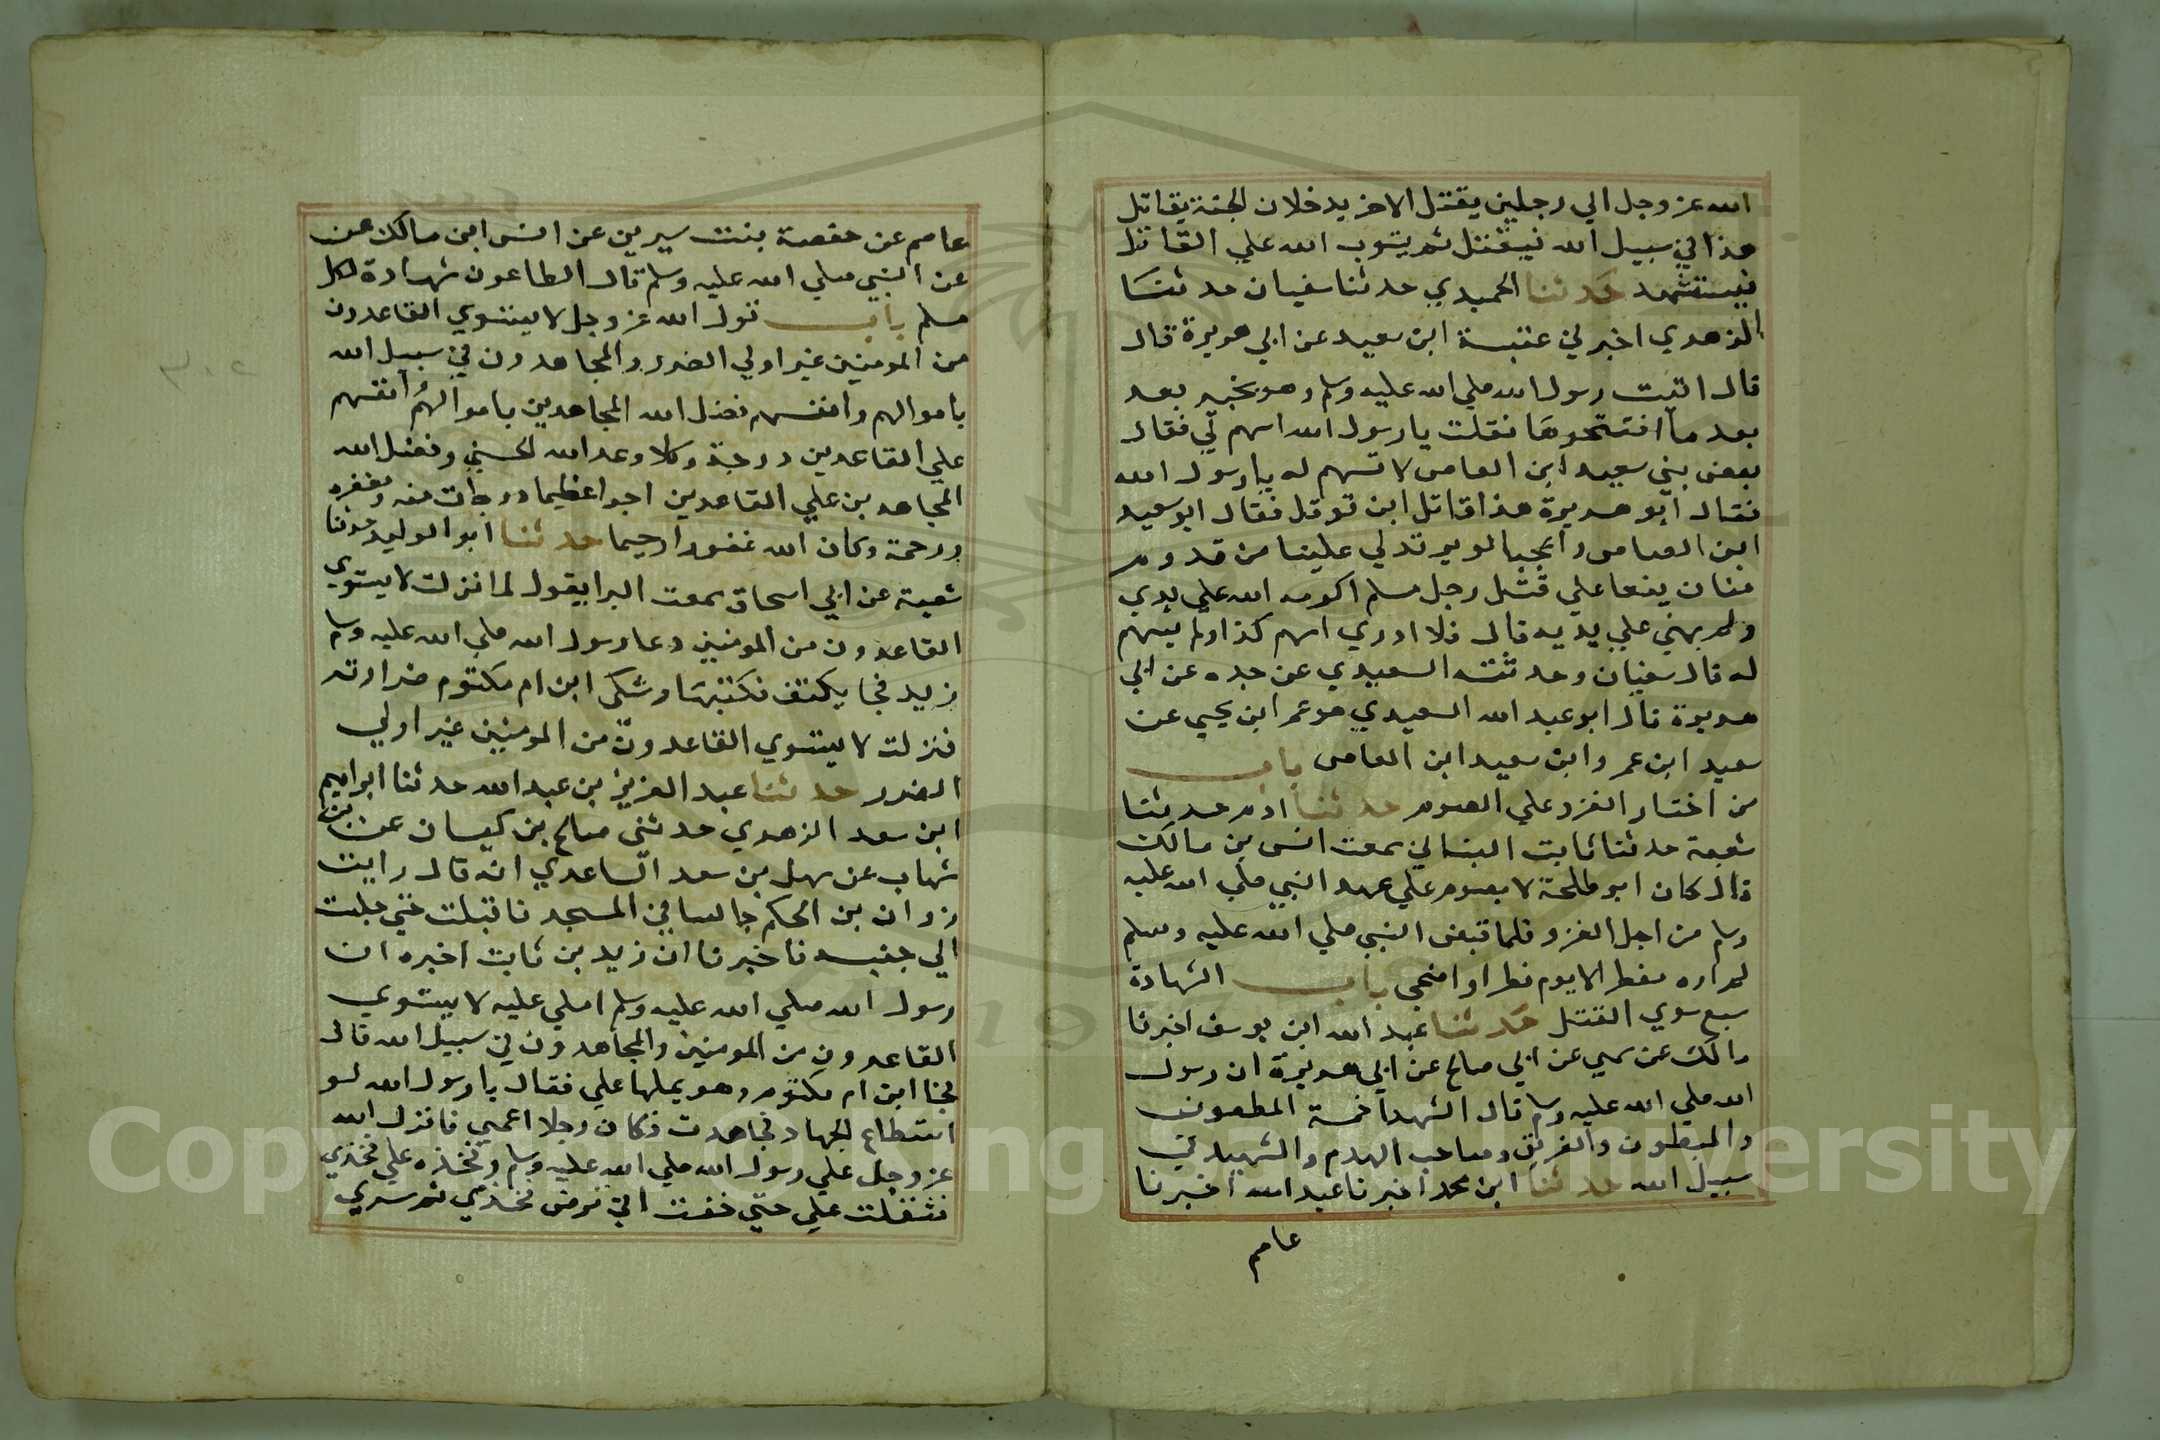 الله عز وجل الي رجلين يقتل الاخر يدخلان الجنة يقاتل
هذا في سبيل الله فيقتل ثم يتوب الله علي القاتل
فيستشهد حدثنا الحميدي حدثنا سفيان حدثنا
الزهري اخبرني عنبسة ابن سعيد عن ابي هريرة قال
قال اتيت رسول الله صلي الله عليه وسلم وهو بخيبر بعد
بعد ما افتتحوها فقلت يا رسول الله اسهم لي فقال
بعض بني سعيد ابن العاص لا تسهم له يا رسول الله
فقال ابو هريرة هذا قاتل ابن توقل فقال ابو سعيد
ابن العاص واعجبا لوبر تدلي علينا من قدوم
ضان ينعا علي قتل رجل مسلم اكرمه الله علي يدي
ولم يهني علي يديه قال فلا ادري اسهم كذا ولم يسهم
له قال سفيان وحدثته السعيدي عن جده عن ابي
هريرة قال ابو عبد الله السعيدي هو عمر ابن يحيي عن
سعيد ابن عمر وابن سعيد ابن العاص باب
من اختار الغزو علي الصوم حدثنا ادم حدثنا
شعبة حدثنا ثابت البناني سمعت انس بن مالك
قال كان ابو طلحة لا يصوم علي عهد النبي صلي الله عليه
وسلم من اجل الغزو فلما قبض النبي صلي الله عليه وسلم
لم اره مفطر الا يوم فطر او اضحي باب الشهادة
سبع سوي القتل حدثنا عبد الله ابن يوسف اخبرنا
مالك عن سمي عن ابي صالح عن ابي هريرة ان رسول
الله صلي الله عليه وسلم قال الشهدا خمسة المطعون
والمبطون والغريق وصاحب الهدم والشهيد في
سبيل الله حدثنا ابن محمد اخبرنا عبد الله اخبرنا
عاصم
عاصم عن حفصة بنت سيرين عن انس ابن مالك عن
عن النبي صلي الله عليه وسلم قال الطاعون شهادة لكل
مسلم باب قول الله عز وجل لا يستوي القاعدون
من المومنين غير اولي الضرر والمجاهدون في سبيل الله
باموالهم وانفسهم فضل الله المجاهدين باموالهم انفسهم
علي القاعدين درجة وكلا وعد الله الحسني وفضل الله
المجاهدين علي القاعدين اجرا عظيما درجات منه ومغفره
ورحمة وكان الله غفورا رحيما حدثنا ابو الوليد حدثنا
شعبة عن ابي اسحاق سمعت البرا يقول لما نزلت لا يستوي
القاعدون من المومنين دعا رسول الله صلي الله عليه وسلم
زيد فجا بكتف فكتبها وشكي ابن ام مكتوم ضرارته
فنزلت لا يستوي القاعدون من المومنين غير اولي
الضرر حدثنا عبد العزيز بن عبد الله حدثنا ابراهيم
ابن سعد الزهري حدثني صالح بن كيسان عن بن
شهاب عن سهل بن سعد الساعدي انه قال رايت
زوان بن الحكم جالسا في المسجد فاقبلت حتي جلست
الي جنبه فاخبرنا ان زيد بن ثابت اخبره ان
رسول الله صلي الله عليه وسلم املي عليه لا يستوي
القاعدون من المومنين والمجاهدون في سبيل الله قال
فجا ابن ام مكتوم وهو يملها علي فقال يا رسول الله لو
استطاع الجهاد لجاهدت وكان رجلا اعمي فانزل الله
عز وجل علي رسول الله صلي الله عليه وسلم وفخذه علي فخذي
فثقلت علي حتي خفت ان ترض فخذي ثم سري
Copy King University